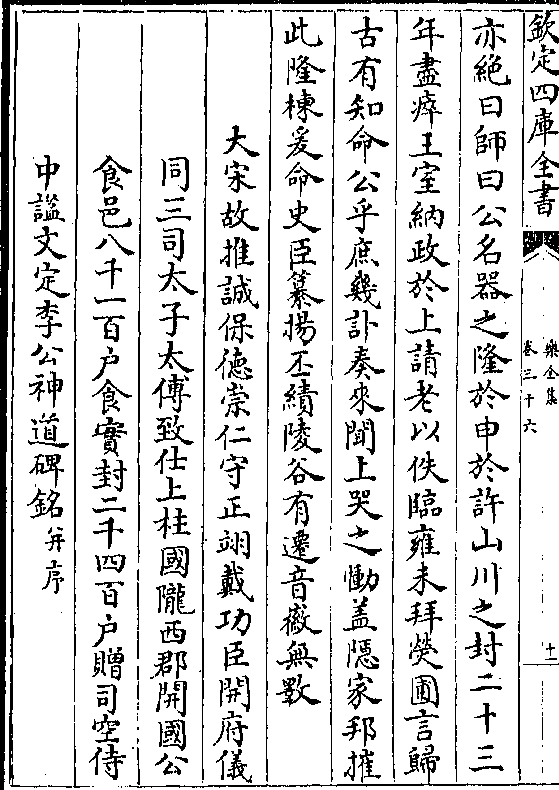 欽定四庫全書
樂全集
卷三十六
十一
亦絶曰師曰公名器之隆於申於許山川之封二十三
年盡瘁王室納政於上請老以佚臨雍未拜熒圃言歸
古有知命公乎庶幾訃奏來聞上哭之慟盖隠家邦摧
此隆棟爰命史臣纂揚丕績陵谷有遷音徽無斁
大宋故推誠保德崇仁守正翊戴功臣開府儀
同三司太子太傅致仕上柱國隴西郡開國公
食邑八千一百户食實封二千四百户贈司空侍
中諡文定李公神道碑銘并序